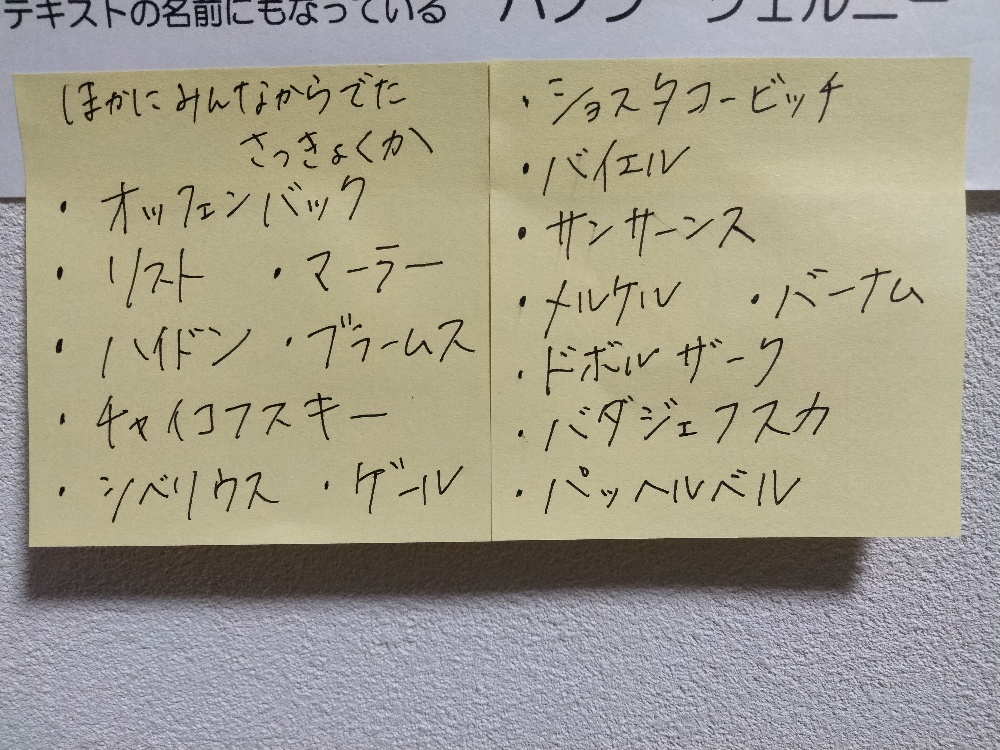 テキストの名前にもなっている ハノン ツェルニー
ほかにみんなからでた
さっきょくか
・オッフェンバック
・リスト ・マーラー
・ハイドン ・ブラームス
・チャイコフスキー
・シベリウス ・ゲール
・ショスタコービッチ
・バイエル
・サンサーンス
・メルケル ・バーナム
・ドボルザーク
・バダジェフスカ
・パッヘルベル